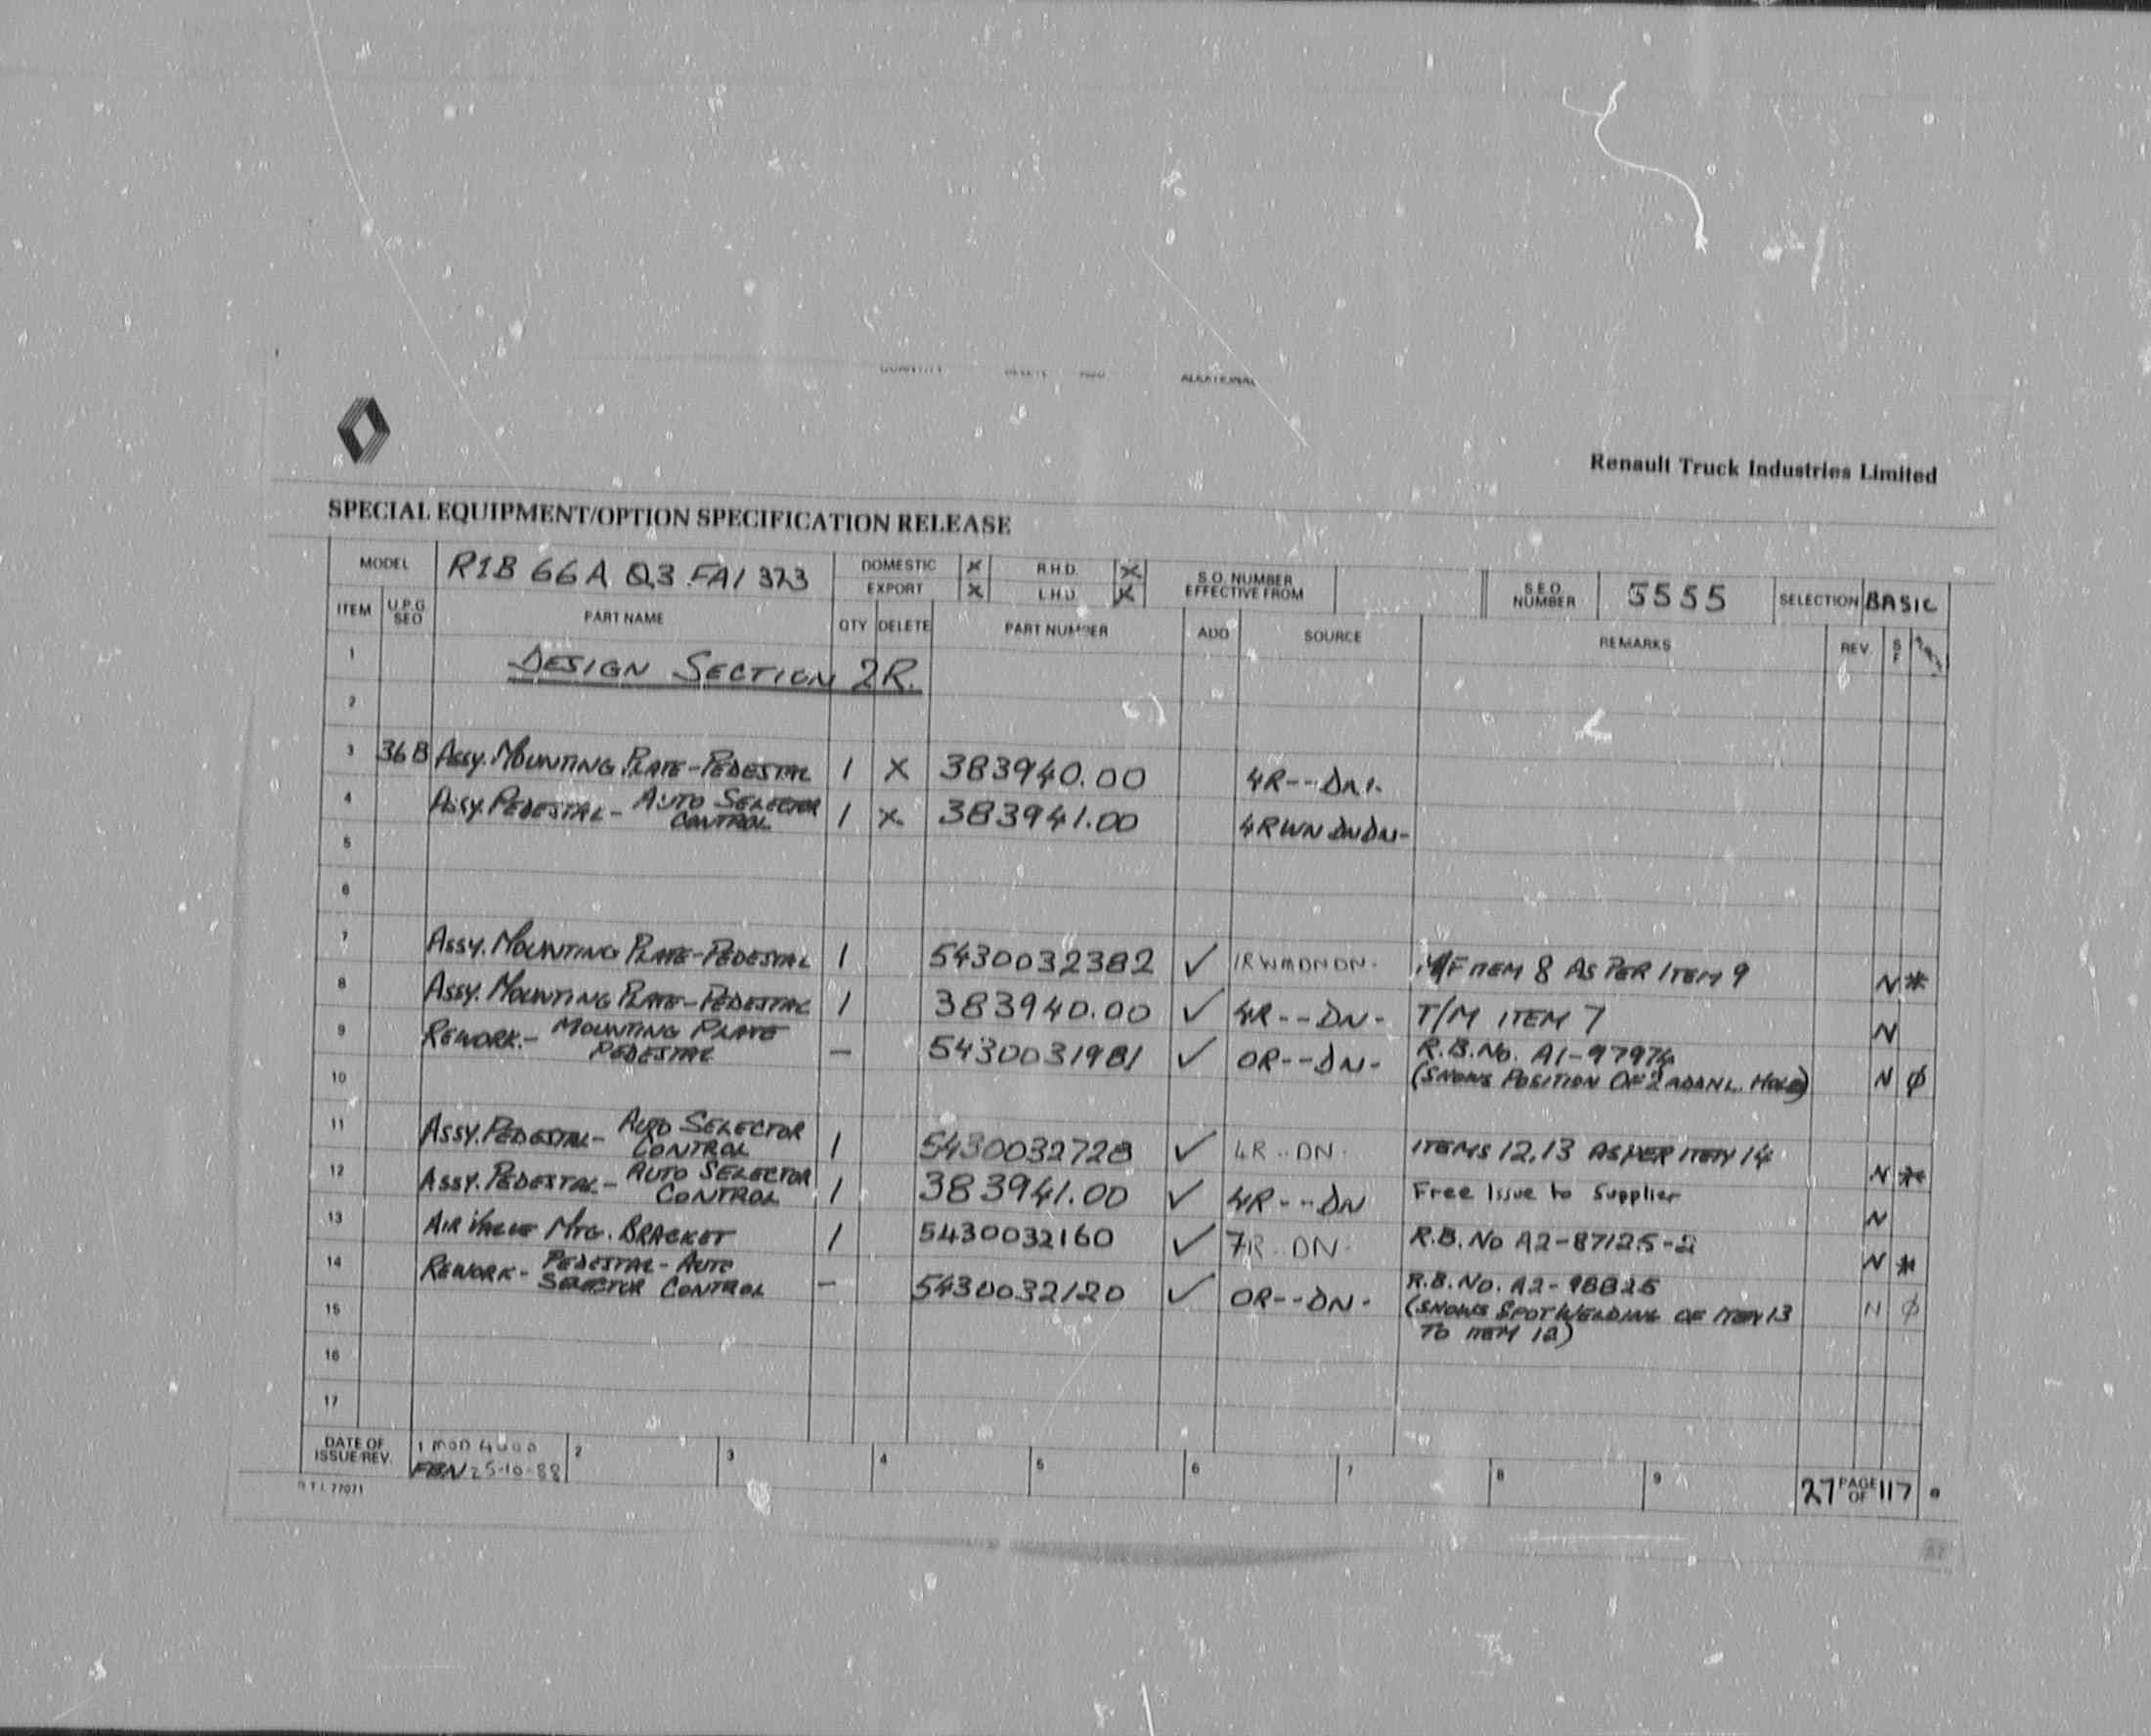 Renault Truck Industries Limited
SPECIAL EQUIPMENT/OPTION SPECIFICATION RELEASE
MODEL R1B 66A Q3 FA1 323 DOMESTIC X R.H.D. X S.O. NUMBER EFFECTIVE FROM S.E.O. NUMBER 5555 SELECTION BASIC
EXPORT X L.H.D. X
ITEM U.P.G SEO PART NAME QTY DELETE PART NUMBER ADD SOURCE REMARKS REV. S F
1 DESIGN SECTION 2R.
2
3 36B ASSY. MOUNTING PLATE-PEDESTAL 1 X 383940.00 4R---DN-
4 ASSY. PEDESTAL- AUTO SELECTOR CONTROL 1 X 383941.00 4RWNDNDN-
5
6
7 ASSY. MOUNTING PLATE-PEDESTAL 1 5430032382 ✓ 1RWMDNDN- M/F ITEM 8 AS PER ITEM 9 N *
8 ASSY. MOUNTING PLATE-PEDESTAL 1 383940.00 ✓ 4R---DN- T/M ITEM 7 N
9 REWORK- MOUNTING PLATE PEDESTAL — 5430031981 ✓ OR--DN- R.B.No. A1-97974
10 (SHOWS POSITION OF 2 ADDNL. HOLES) N ϕ
11 ASSY. PEDESTAL- AUTO SELECTOR CONTROL 1 5430032728 ✓ 4R--DN- ITEMS 12,13 AS PER ITEM 14 N *
12 ASSY. PEDESTAL- AUTO SELECTOR CONTROL 1 383941.00 ✓ 4R---DN Free Issue to Supplier N
13 AIR VALVE MTG. BRACKET 1 5430032160 ✓ 7R--DN- R.B. No A2-87125-2 N *
14 REWORK- PEDESTAL-AUTO SELECTOR CONTROL — 5430032120 ✓ OR--DN- R.B.No. A2-98825
15 (SHOWS SPOTWELDING OF ITEM 13 N ϕ
TO ITEM 12)
16
17
DATE OF ISSUE/REV. 1 MOD 4000 2 3 4 5 6 7 8 9 27 PAGE OF 117
FBN 25-10-88
R T I 77071